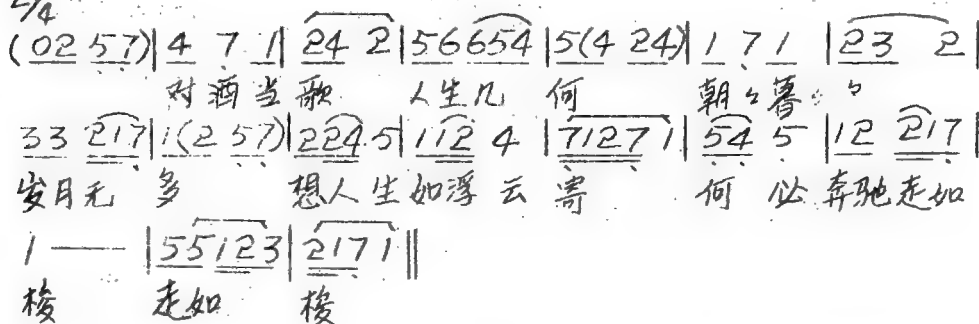 2/4
(02 57)|4 7 1|24 2|56 654|5(4 24)|1 7 1|23 2|
对酒当歌 人生几何 朝々暮々々
33 217|1(2 57)|224 5|112 4|7127 1|54 5|12 217|
岁月无多 想人生如浮云寄 何必奔驰走如
1 —|55 123|217 1‖
梭 走如 梭